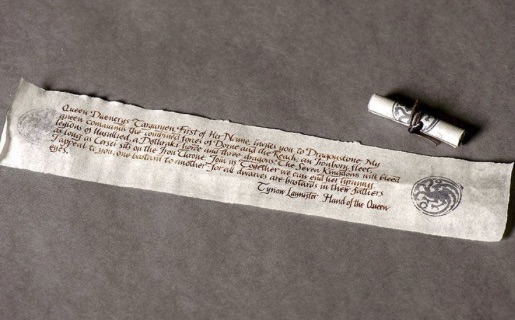 Queen Daenerys Targaryen First of Her Name, invites you to Dragonstone. My
queen commands the combined forces of Dorne and the Reach, an Ironborn fleet,
legions of Unsullied, a Dothraki horde and three dragons. The Seven Kingdoms will bleed
as long as Cersei sits on the Iron Throne. Join us. Together we can end her tyranny.
I appeal to you, one bastard to another for all dwarves are bastards in their fathers
eyes.
Tyrion Lannister Hand of the Queen